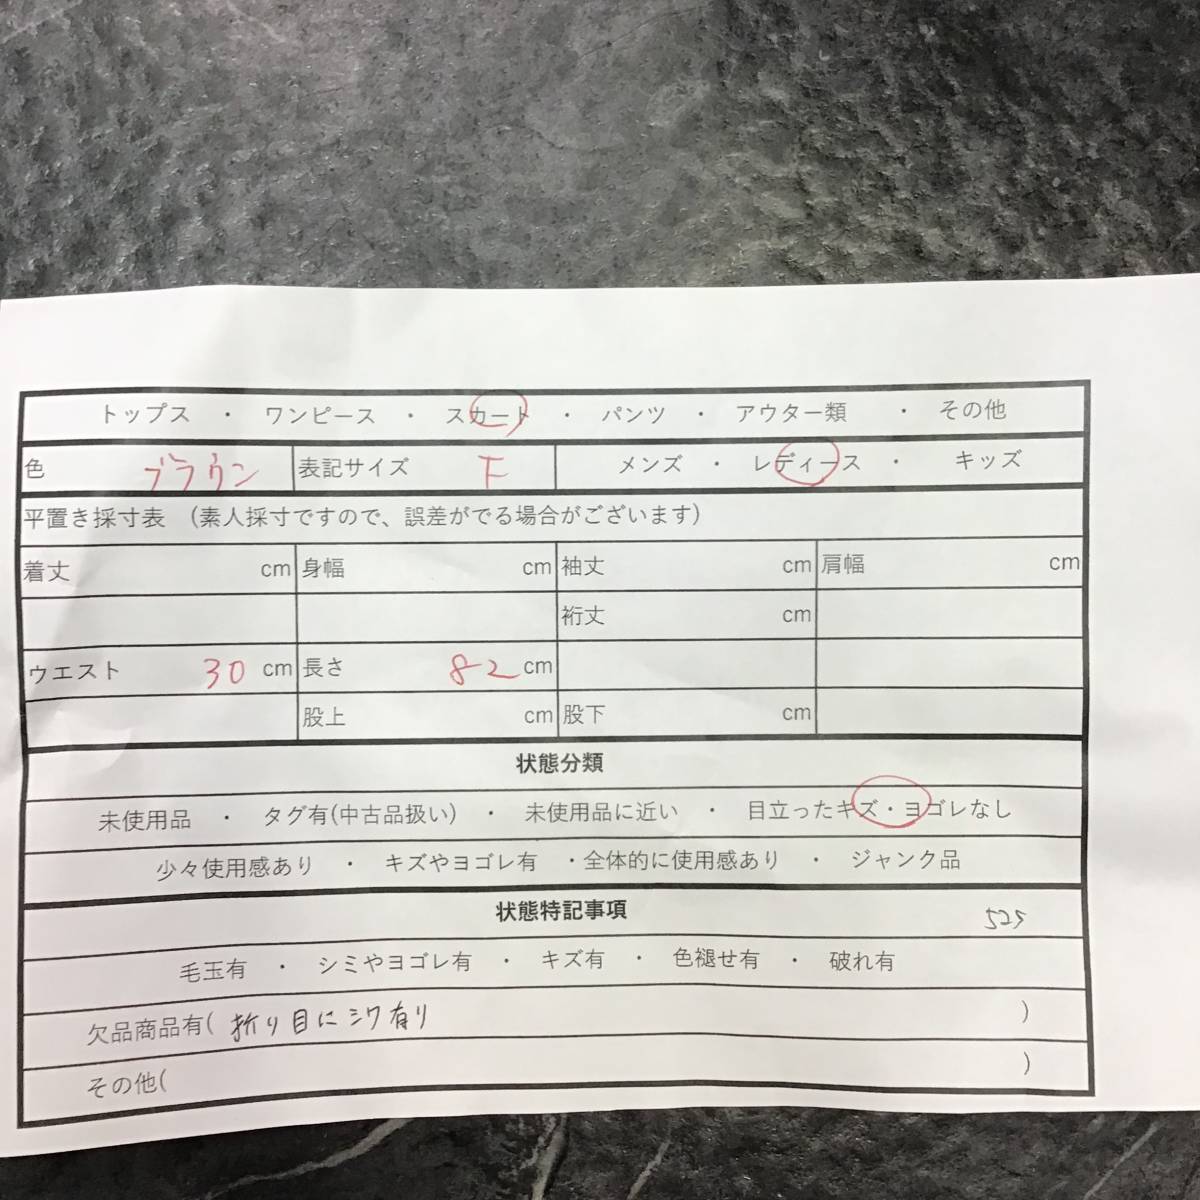 トップス ・ ワンピース ・ スカート ・ パンツ ・ アウター類 ・ その他
色 ブラウン 表記サイズ F メンズ ・ レディース ・ キッズ
平置き採寸表 (素人採寸ですので、誤差がでる場合がございます)
着丈 cm 身幅 cm 袖丈 cm 肩幅 cm
裄丈 cm
ウエスト 30 cm 長さ 82 cm
股上 cm 股下 cm
状態分類
未使用品 ・ タグ有(中古品扱い) ・ 未使用品に近い ・ 目立ったキズ・ヨゴレなし
少々使用感あり ・ キズやヨゴレ有 ・全体的に使用感あり ・ ジャンク品
状態特記事項 525
毛玉有 ・ シミやヨゴレ有 ・ キズ有 ・ 色褪せ有 ・ 破れ有
欠品商品有( 折り目にシワ有り )
その他( )